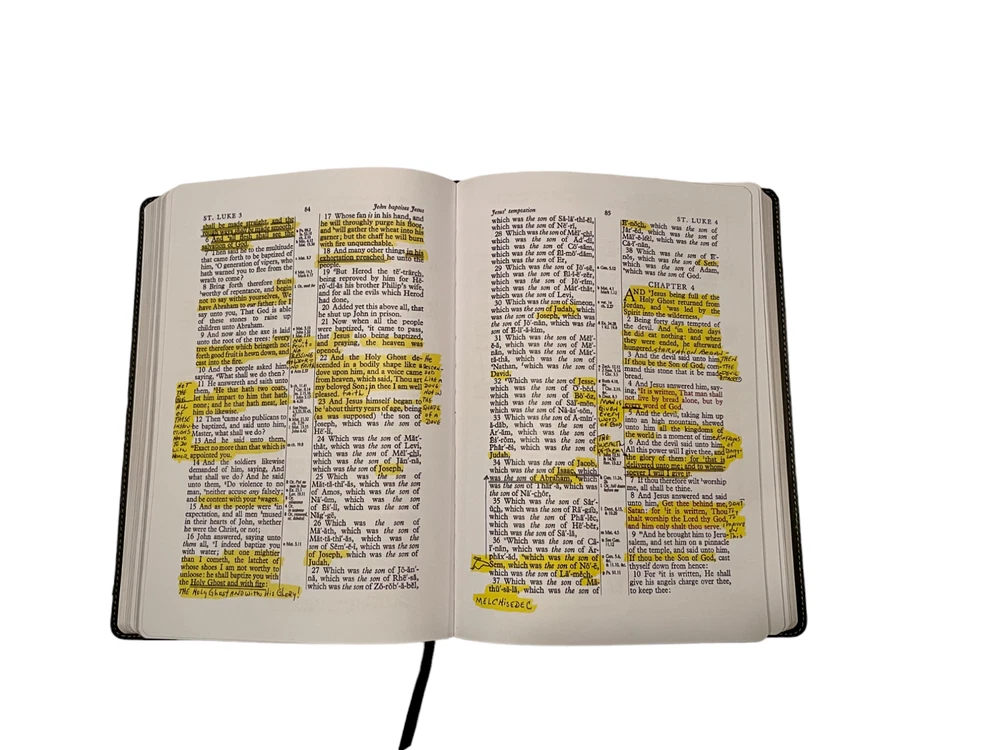 ST. LUKE 3
84
John baptizes Jesus
shall be made straight, and the
6 And all flesh shall see the
salvation of God.
7 Then said he to the multitude
that came forth to be baptized of
him, O generation of vipers, who
hath warned you to flee from the
wrath to come?
8 Bring forth therefore fruits
worthy of repentance, and begin
not to say within yourselves, We
have Abraham to our father: for I
say unto you, That God is able
of these stones to raise up
children unto Abraham.
9 And now also the axe is laid
unto the root of the trees: every
tree therefore which bringeth not
forth good fruit is hewn down, and
cast into the fire.
10 And the people asked him,
saying, What shall we do then?
11 He answereth and saith unto
them, He that hath two coats,
let him impart to him that hath
none; and he that hath meat, let
him do likewise.
12 Then came also publicans to
be baptized, and said unto him,
Master, what shall we do?
13 And he said unto them,
Exact no more than that which is
appointed you.
14 And the soldiers likewise
demanded of him, saying, And
what shall we do? And he said
unto them, Do violence to no
man, neither accuse any falsely;
and be content with your wages.
15 And as the people were in
expectation, and all men mused
in their hearts of John, whether
he were the Christ, or not;
16 John answered, saying unto
them all, I indeed baptize you
with water; but one mightier
than I cometh, the latchet of
whose shoes I am not worthy to
unloose: he shall baptize you with
the Holy Ghost and with fire:
THE HOLY GHOST AND WITH HIS GLORY!
17 Whose fan is in his hand, and
he will throughly purge his floor,
and will gather the wheat into his
garner; but the chaff he will burn
with fire unquenchable.
18 And many other things in his
exhortation preached he unto the
people.
19 But Herod the tē´-trärch,
being reproved by him for Hē-
rō´-dĭ-ăs his brother Philip's wife,
and for all the evils which Herod
had done,
20 Added yet this above all, that
he shut up John in prison.
21 Now when all the people
were baptized, it came to pass,
that Jesus also being baptized,
and praying, the heaven was
opened,
22 And the Holy Ghost de-
scended in a bodily shape like a
dove upon him, and a voice came
from heaven, which said, Thou art
my beloved Son; in thee I am well
pleased. FAITH
23 And Jesus himself began to
be about thirty years of age, being
(as was supposed) the son of
Joseph, which was the son of
Hē´-lī,
24 Which was the son of Măt´-
thăt, which was the son of Levi,
which was the son of Mĕl´-chī,
which was the son of Jăn´-nă,
which was the son of Joseph,
25 Which was the son of
Măt-tă-thī´-ăs, which was the son
of Amos, which was the son of
Nā´-ŭm, which was the son
of Ĕs´-lī, which was the son of
Năg´-gē,
26 Which was the son of
Mā´-ăth, which was the son of
Măt-tă-thī´-ăs, which was the son
of Sĕm´-ĕ-ī, which was the son
of Joseph, which was the son of
Judah,
27 Which was the son of Jō-ăn´-
nă, which was the son of Rhē´-să,
which was the son of Zō-rŏb´-ă-bĕl,
Jesus' temptation
85
ST. LUKE 4
which was the son of Să-lā´-thĭ-ĕl,
which was the son of Nē´-rī,
28 Which was the son of Mĕl´-chī,
which was the son of Ăd´-dī,
which was the son of Cō´-săm,
which was the son of Ĕl-mō´-dăm,
which was the son of Ĕr,
29 Which was the son of Jō´-sē,
which was the son of Ĕl-ĭ-ē´-zĕr,
which was the son of Jō´-rĭm,
which was the son of Măt´-thăt,
which was the son of Levi,
30 Which was the son of Simeon,
which was the son of Judah,
which was the son of Joseph, which was the son
of Jō´-năn, which was the son
of Ē-lī´-ă-kĭm,
31 Which was the son of Mĕl´-
ĕ-ă, which was the son of Mē´-
năn, which was the son of
Măt´-tă-thă, which was the son of
Nathan, which was the son of
David,
32 Which was the son of Jesse,
which was the son of Ō´-bĕd,
which was the son of Bō´-ŏz,
which was the son of Săl´-mŏn,
which was the son of Nā-ăs´-sŏn,
33 Which was the son of Ă-mĭn´-
ă-dăb, which was the son of
Ār´-ăm, which was the son of
Ĕs´-rŏm, which was the son of
Phăr´-ēs, which was the son of
Judah,
34 Which was the son of Jacob,
which was the son of Isaac, which
was the son of Abraham, which
was the son of Thăr´-ă, which was
the son of Nā´-chôr,
35 Which was the son of Săr´-
ŭch, which was the son of Rā´-gaŭ,
which was the son of Phā´-lĕc,
which was the son of Hē´-bĕr,
which was the son of Sā´-lă,
36 Which was the son of Că-
ī´-năn, which was the son of Ar-
phăx´-ăd, which was the son of
Sem, which was the son of Nō´-ē,
which was the son of Lā´-mĕch,
37 Which was the son of Mă-
thū´-să-lă, which was the son of
MELCHISEDEC
Ē´-nŏch, which was the son of
Jăr´-ĕd, which was the son of
Măl´-ē-lĕĕl, which was the son of
Că-ī´-năn,
38 Which was the son of Ē-
nŏs, which was the son of Seth,
which was the son of Adam,
which was the son of God.
CHAPTER 4
AND Jesus being full of the
Holy Ghost returned from
Jordan, and was led by the
Spirit into the wilderness,
2 Being forty days tempted of
the devil. And in those days
he did eat nothing: and when
they were ended, he afterward
hungered. STARVATION BEGAN
3 And the devil said unto him,
If thou be the Son of God, com-
mand this stone that it be made
bread.
4 And Jesus answered him, say-
ing, It is written, That man shall
not live by bread alone, but by
every word of God.
5 And the devil, taking him up
into an high mountain, shewed
unto him all the kingdoms of
the world in a moment of time.
6 And the devil said unto him,
All this power will I give thee, and
the glory of them: for that is
delivered unto me; and to whom-
soever I will I give it.
7 If thou therefore wilt worship
me, all shall be thine.
8 And Jesus answered and said
unto him, Get thee behind me,
Satan: for it is written, Thou
shalt worship the Lord thy God,
and him only shalt thou serve.
9 And he brought him to Jeru-
salem, and set him on a pinnacle
of the temple, and said unto him,
If thou be the Son of God, cast
thyself down from hence:
10 For it is written, He shall
give his angels charge over thee,
to keep thee: